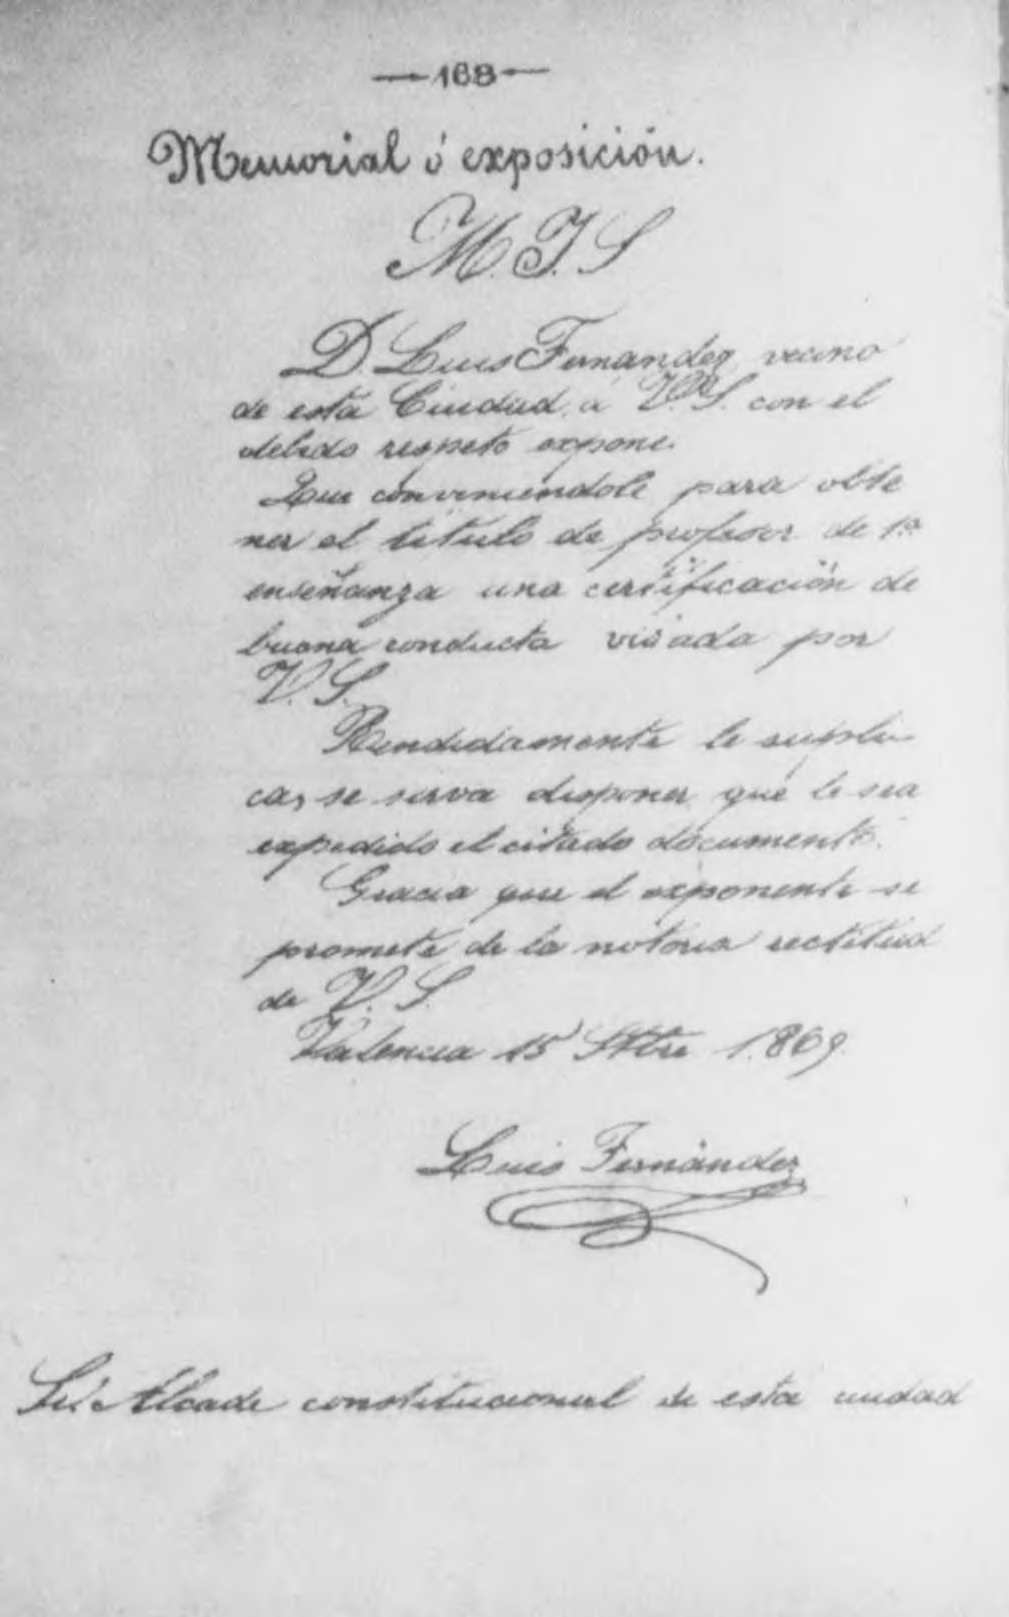 —168—
Memorial ó exposición.
M. I. S
D Luis Fernandez, vecino
de esta Ciudad, á V. S. con el
debido respeto expone.
Que conveniendole para obte
ner el titulo de profesor de 1ª
enseñanza una certificación de
buena conducta visada por
V. S.
Rendidamente le supli-
ca, se sirva disponer que le sea
expedido el citado documento.
Gracia que el exponente se
promete de la notoria rectitud
de V. S.
Valencia 15 Stbre 1.869.
Luis Fernández
Sr. Alcade constitucional de esta ciudad